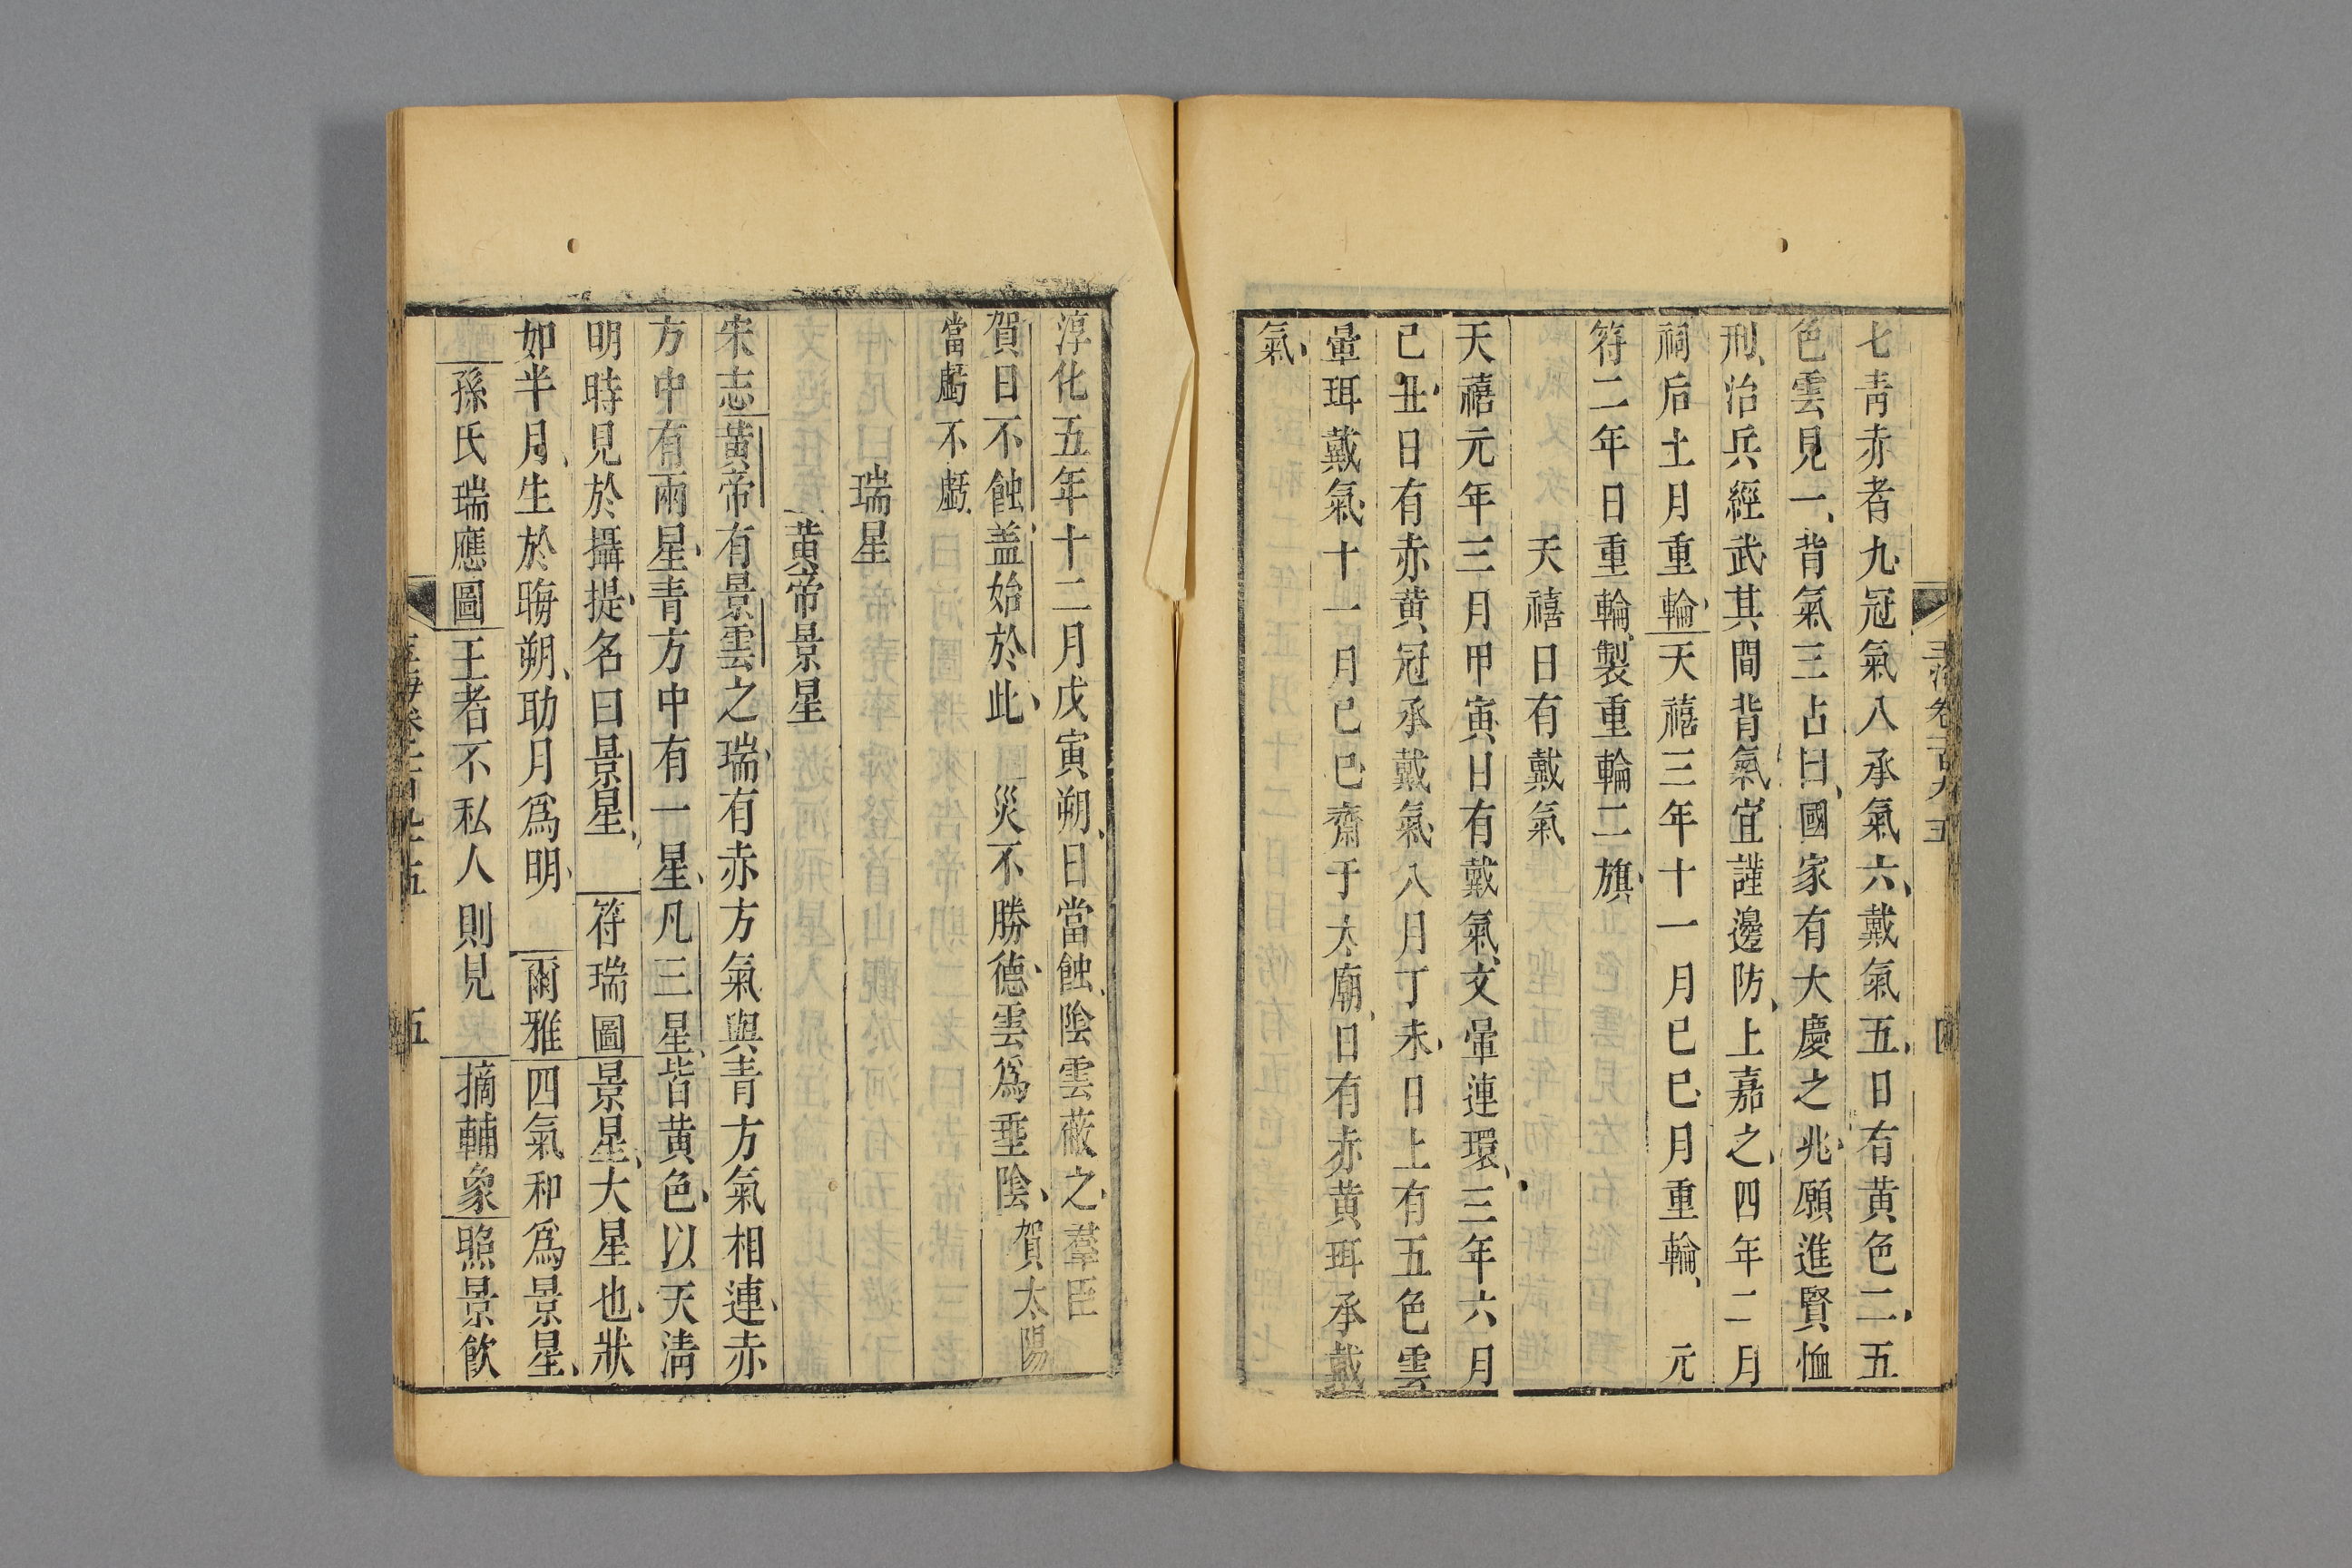 七青赤者九冠氣八承氣六戴氣五日有黄色二五
色雲見一背氣三占曰國家有大慶之兆願進賢恤
刑治兵經武其間背氣宜謹邊防上嘉之四年二月
祠后土月重輪天禧三年十一月已巳月重輪 元
符二年日重輪製重輪二旗
天禧日有戴氣
天禧元年三月甲寅日有戴氣交暈連環三年六月
已丑日有赤黄冠承戴氣八月丁未日上有五色雲
暈珥戴氣十一月已巳齋于太廟日有赤黄珥承戴
氣
淳化五年十二月戊寅朔日當蝕陰雲蔽之羣臣
賀日不蝕盖始於此 災不勝德雲爲垂陰賀太陽
當虧不虧
瑞星
黄帝景星
宋志黄帝有景雲之瑞有赤方氣與青方氣相連赤
方中有兩星青方中有一星凡三星皆黄色以天淸
明時見於攝提名曰景星 符瑞圖景星大星也狀
如半月生於晦朔助月爲明 爾雅四氣和爲景星
孫氏瑞應圖王者不私人則見 摘輔象照景飮